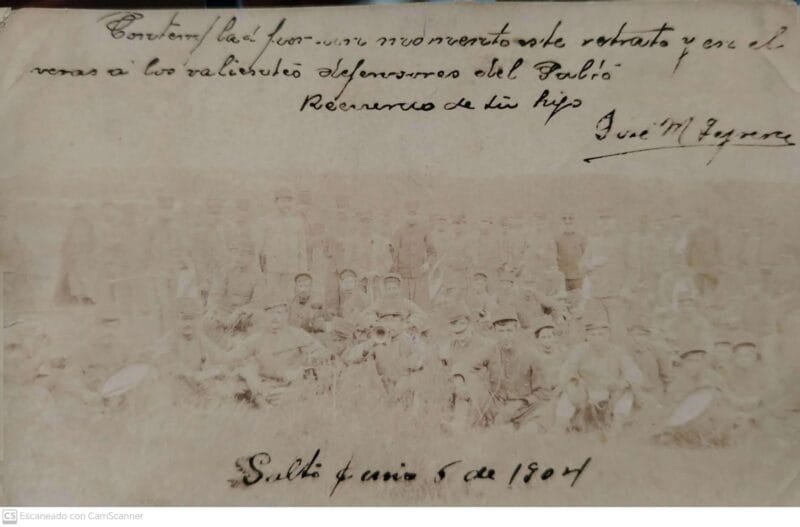 Contemplad por un momento este retrato y en el
veras a los valientes defensores del Palió
Recuerdo de tu hijo
José M
Salto Junio 5 de 1904
CS Escaneado con CamScanner